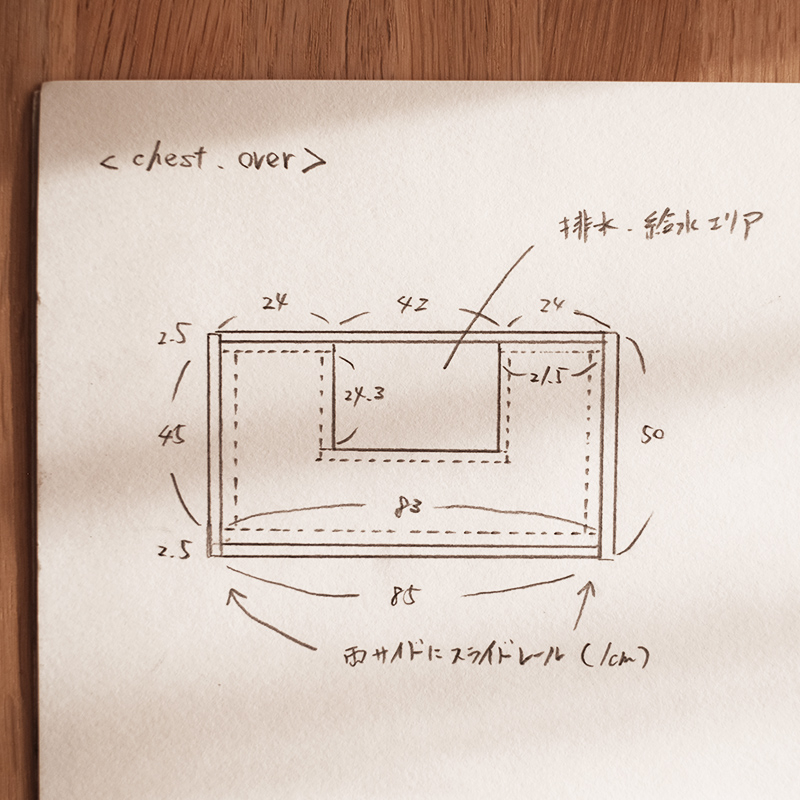 < chest. over >
排水．給水エリア
24 42 24
2.5
24.3 21.5
45 50
83
2.5
85
両サイドにスライドレール (1cm)